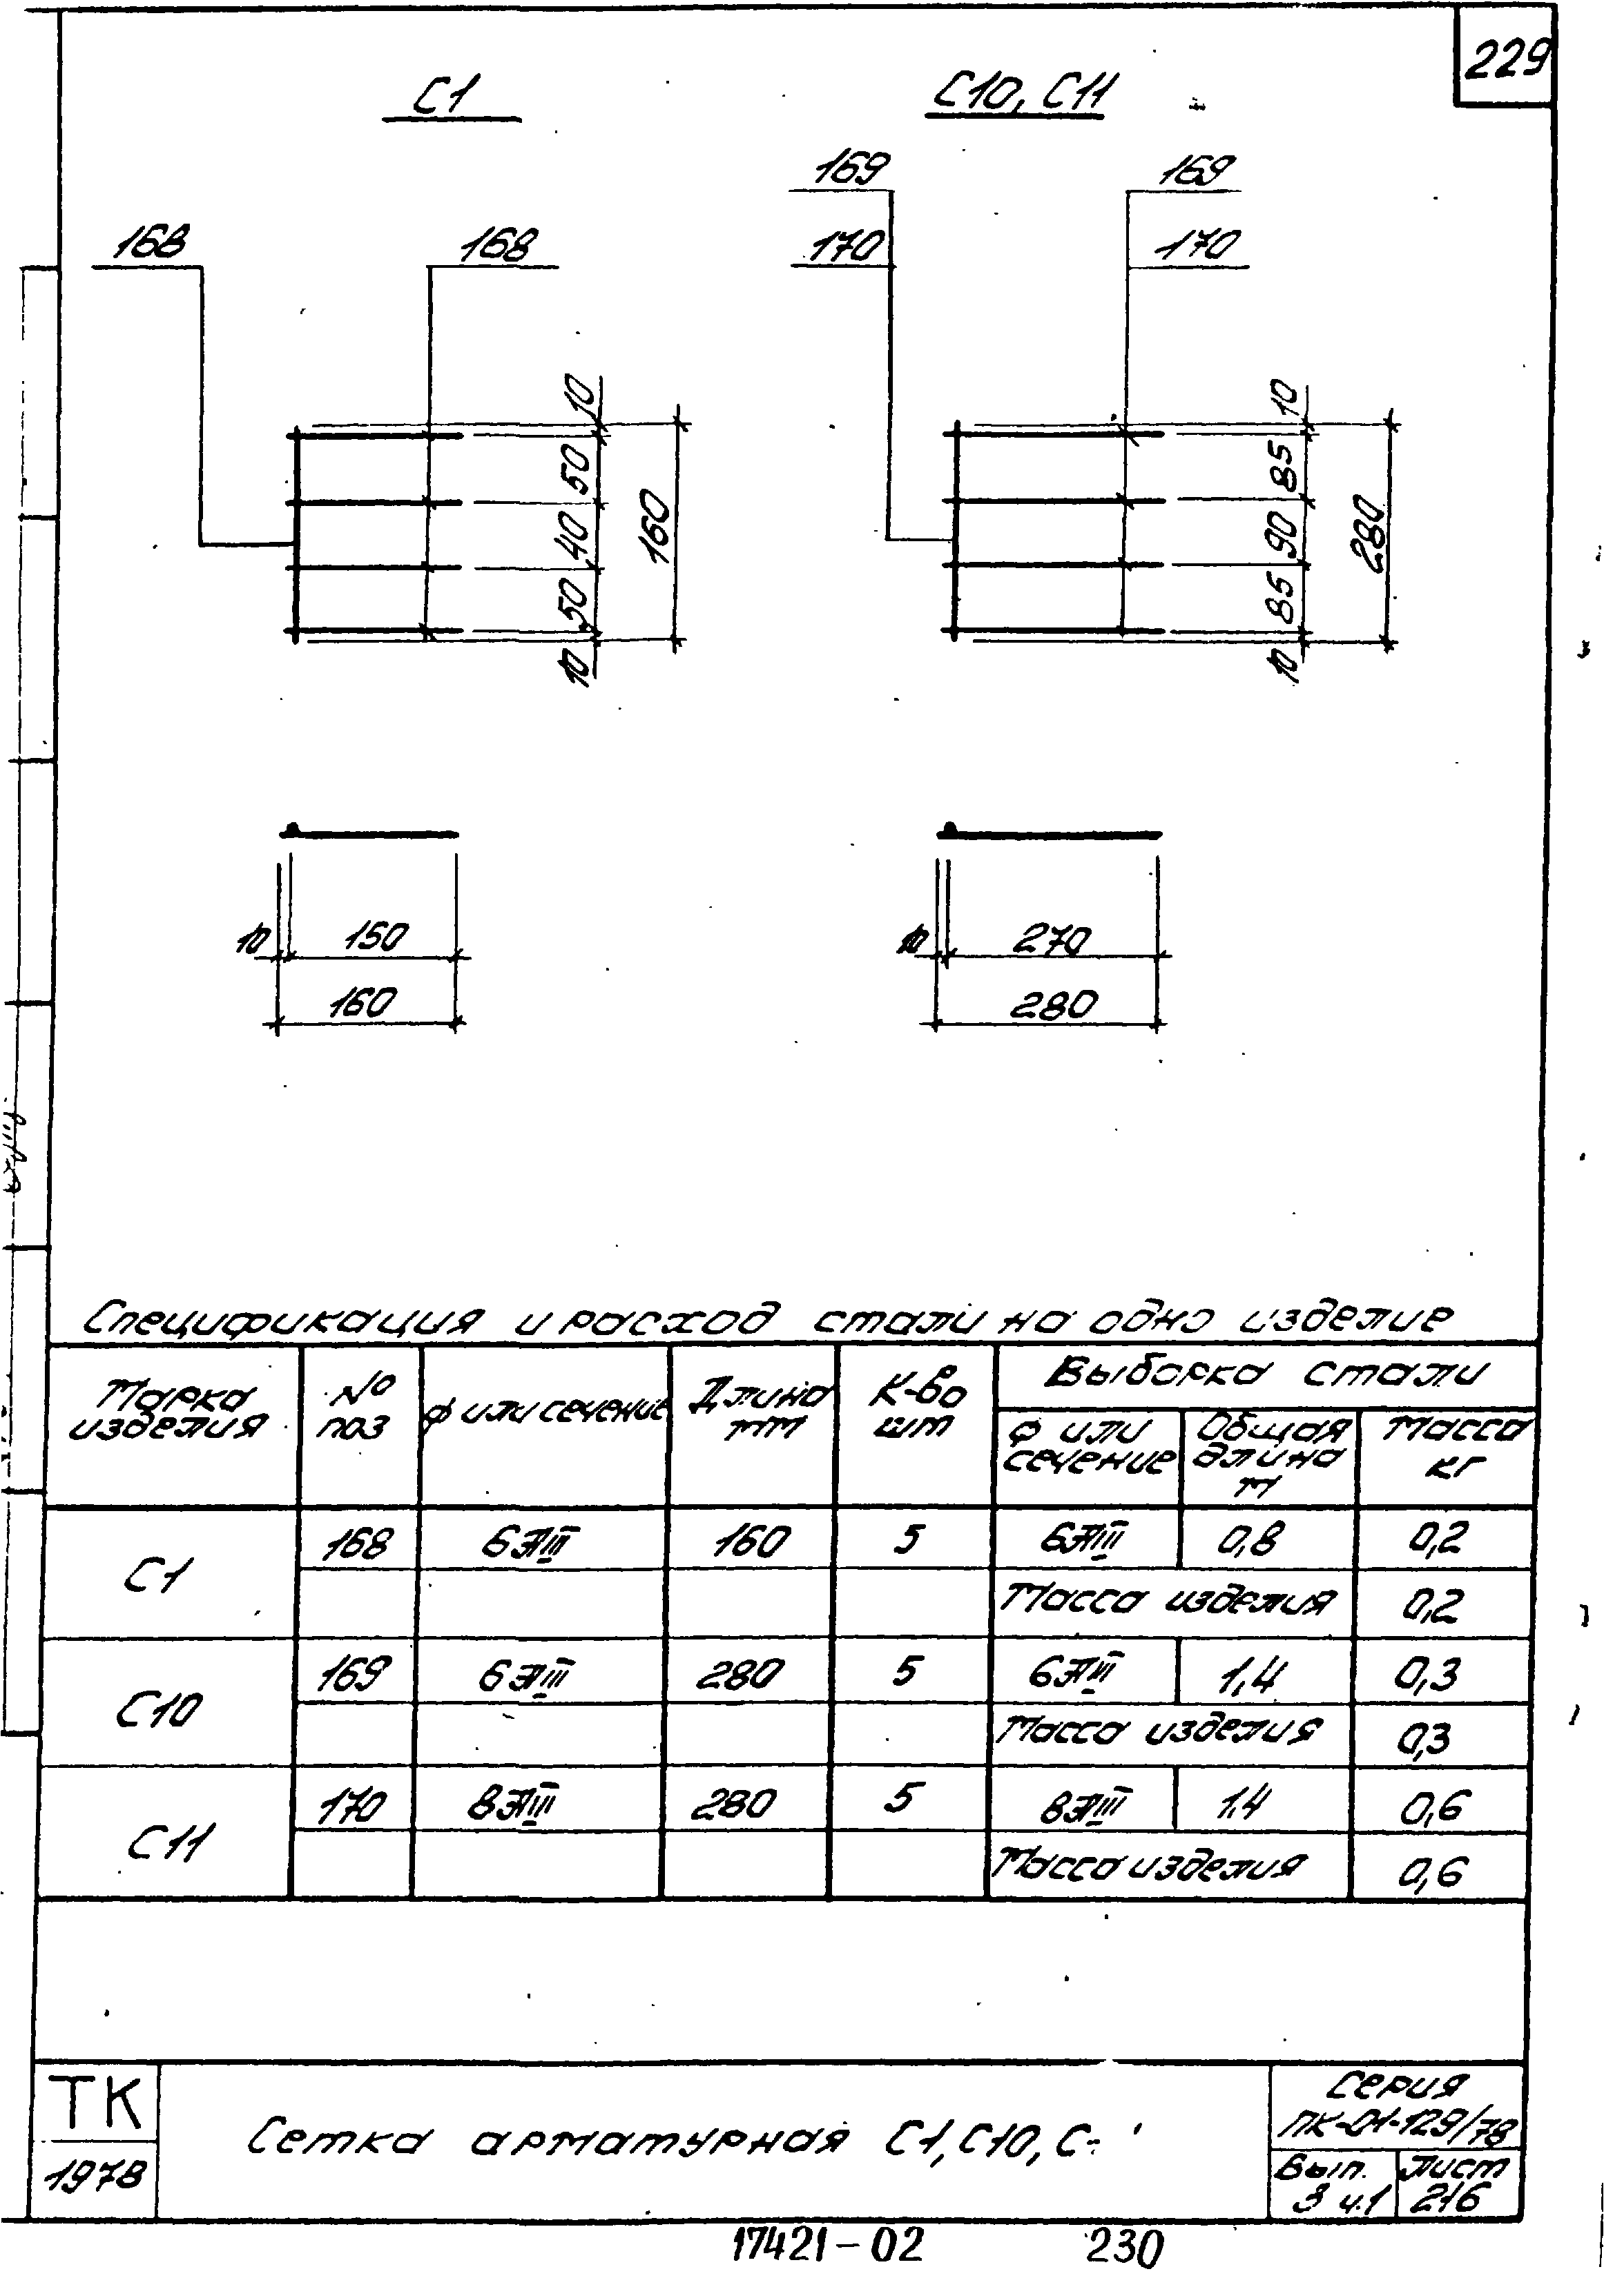 229
С1
С10, С11
168
168
169
170
169
170
10
50
40
50
10
160
10
85
90
85
10
280
10
150
160
10
270
280
Спецификация и расход стали на одно изделие
Марка изделия
№ поз
ф или сечение
Длина мм
К-во шт
Выборка стали
ф или сечение
Общая длина м
Масса кг
С1
168 6АIII 160 5 6АIII 0,8 0,2
Масса изделия 0,2
С10
169 6АIII 280 5 6АIII 1,4 0,3
Масса изделия 0,3
С11
170 8АIII 280 5 8АIII 1.4 0,6
Масса изделия 0,6
ТК
1978
Сетка арматурная С1, С10, С
Серия
ПК-01-129/78
Вып.
3 ч.1
Лист
216
17421-02
230